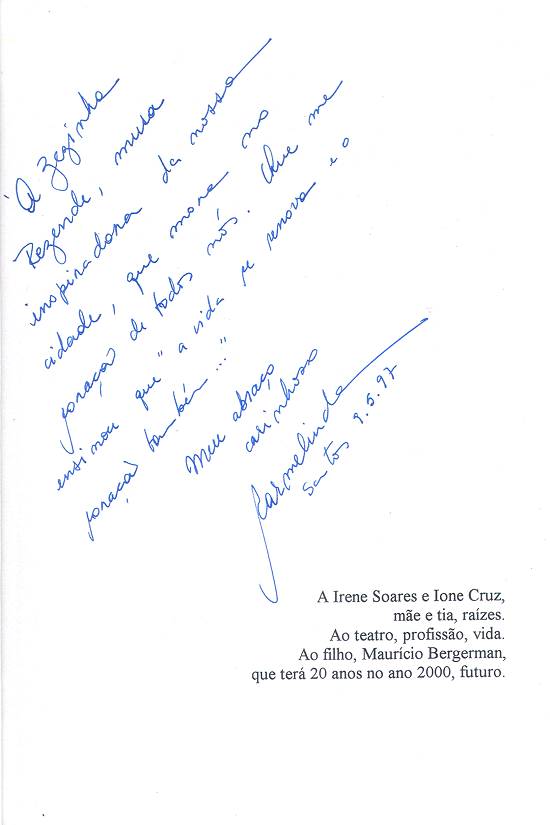 À Zezinha
Rezende, musa
inspiradora da nossa
cidade, que mora no
coração de todos nós. Que me
ensinou que "a vida se renova e o
coração também..."
Meu abraço
carinhoso
Carmelinda
Santos 9.5.97
A Irene Soares e Ione Cruz,
mãe e tia, raízes.
Ao teatro, profissão, vida.
Ao filho, Maurício Bergerman,
que terá 20 anos no ano 2000, futuro.